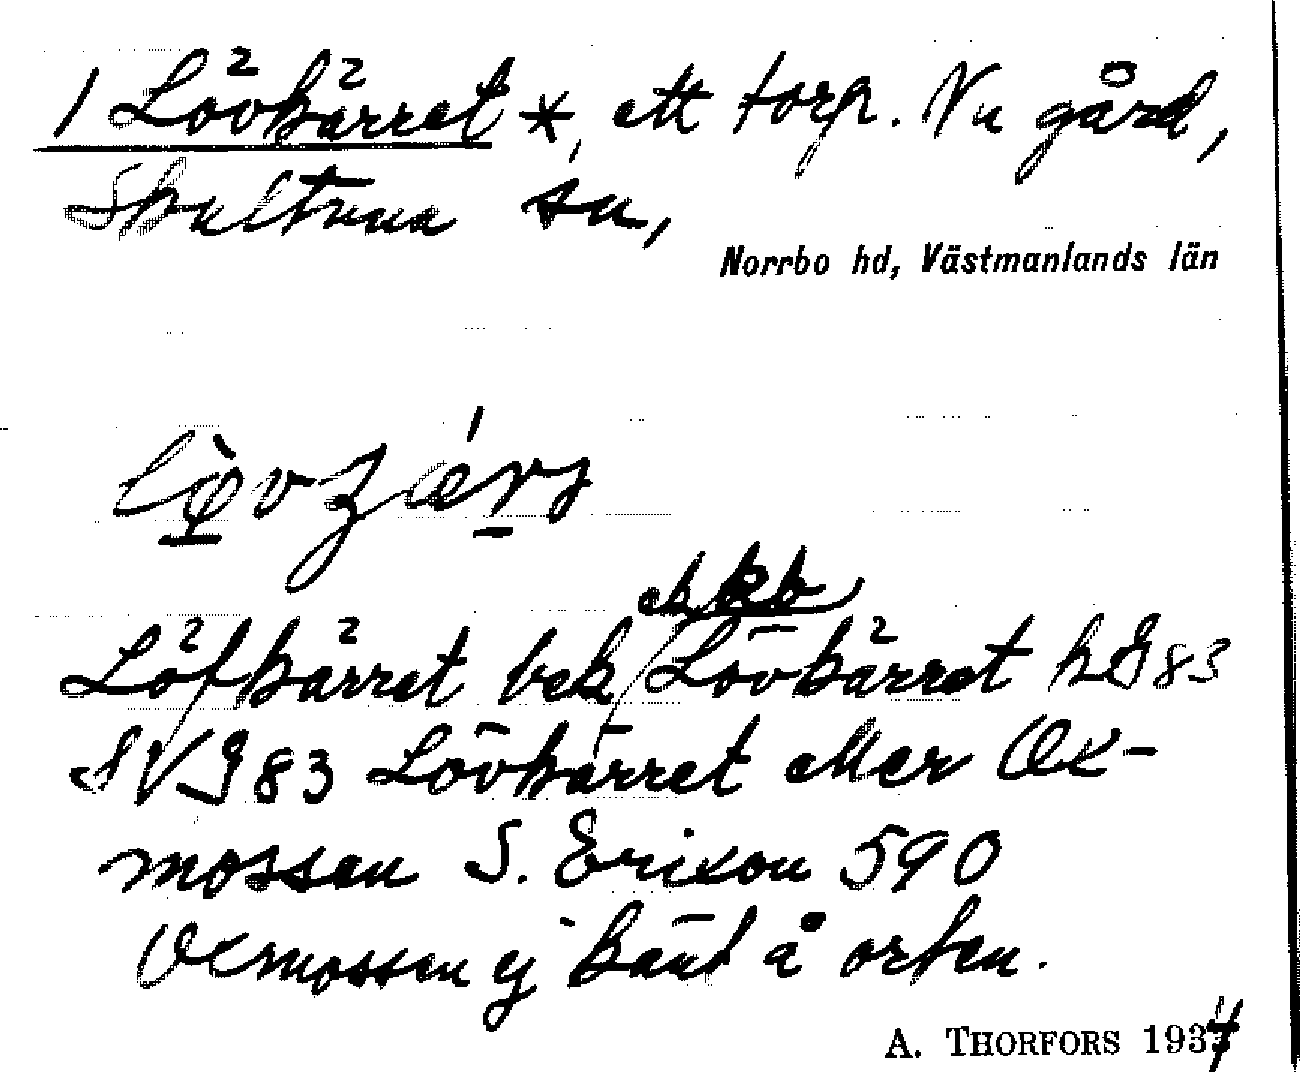 1 Lövkärret *, ett torp. Nu gård,
Skultuna sn,
Norrbo hd, Västmanlands län
ek kb
Löfkärret bek / Lövkärret hS 83
SVS 83 Lövkärret eller Ox-
mossen S. Erixon 590
Oxmossen ej känt å orten.
A. THORFORS 1934